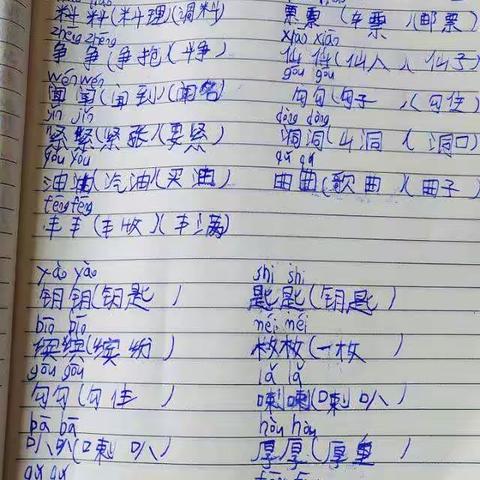 料料(料理)(调料) 票票(车票)(邮票)
zhēng zhēng xiān xiān
争争(争抢)(斗争) 仙仙(仙人)(仙子)
wén wén gōu gōu
闻闻(闻到)(闻名) 勾勾(勾子)(勾住)
jǐn jǐn dòng dòng
紧紧(紧张)(要紧) 洞洞(山洞)(洞口)
yóu yóu qǔ qǔ
油油(汽油)(买油) 曲曲(歌曲)(曲子)
fēng fēng
丰丰(丰收)(丰满)
yào yào shi shi
钥钥(钥匙) 匙匙(钥匙)
bīn bīn méi méi
缤缤(缤纷) 枚枚(一枚)
gōu gōu lǎ lǎ
勾勾(勾住) 喇喇(喇叭)
bā bā hòu hòu
叭叭(喇叭) 厚厚(厚重)